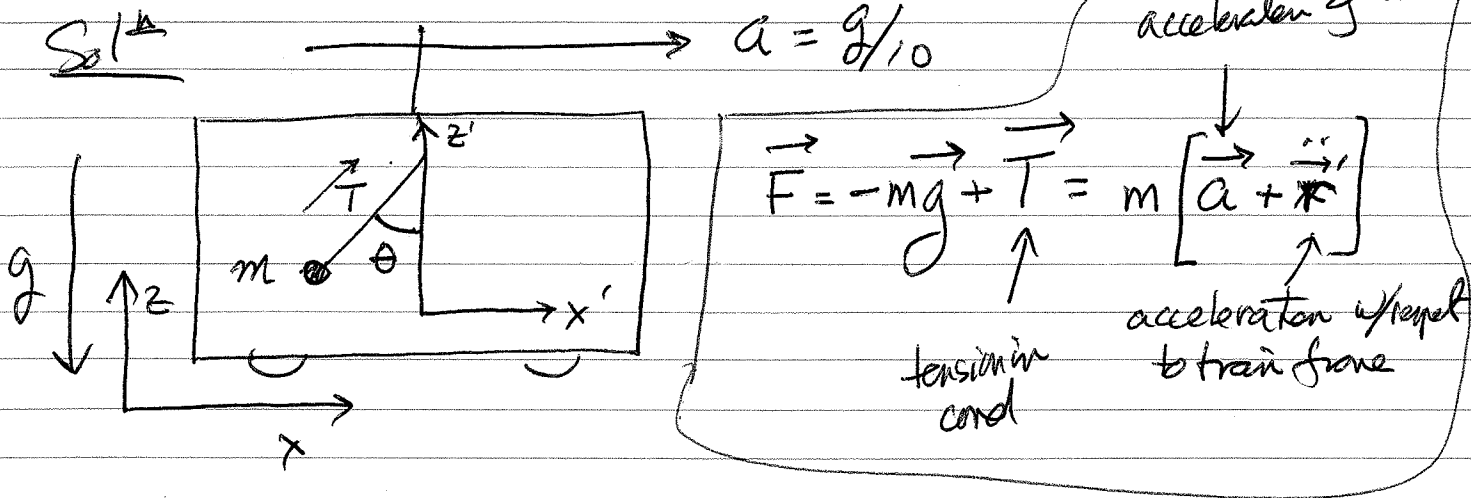 Sol<sup>n</sup>
a = g/10
acceleration of
z'
T
θ
m
g
z
x'
x
F = -mg + T = m [ a + r̈' ]
tension in
cord
acceleration w/respect
to train frame